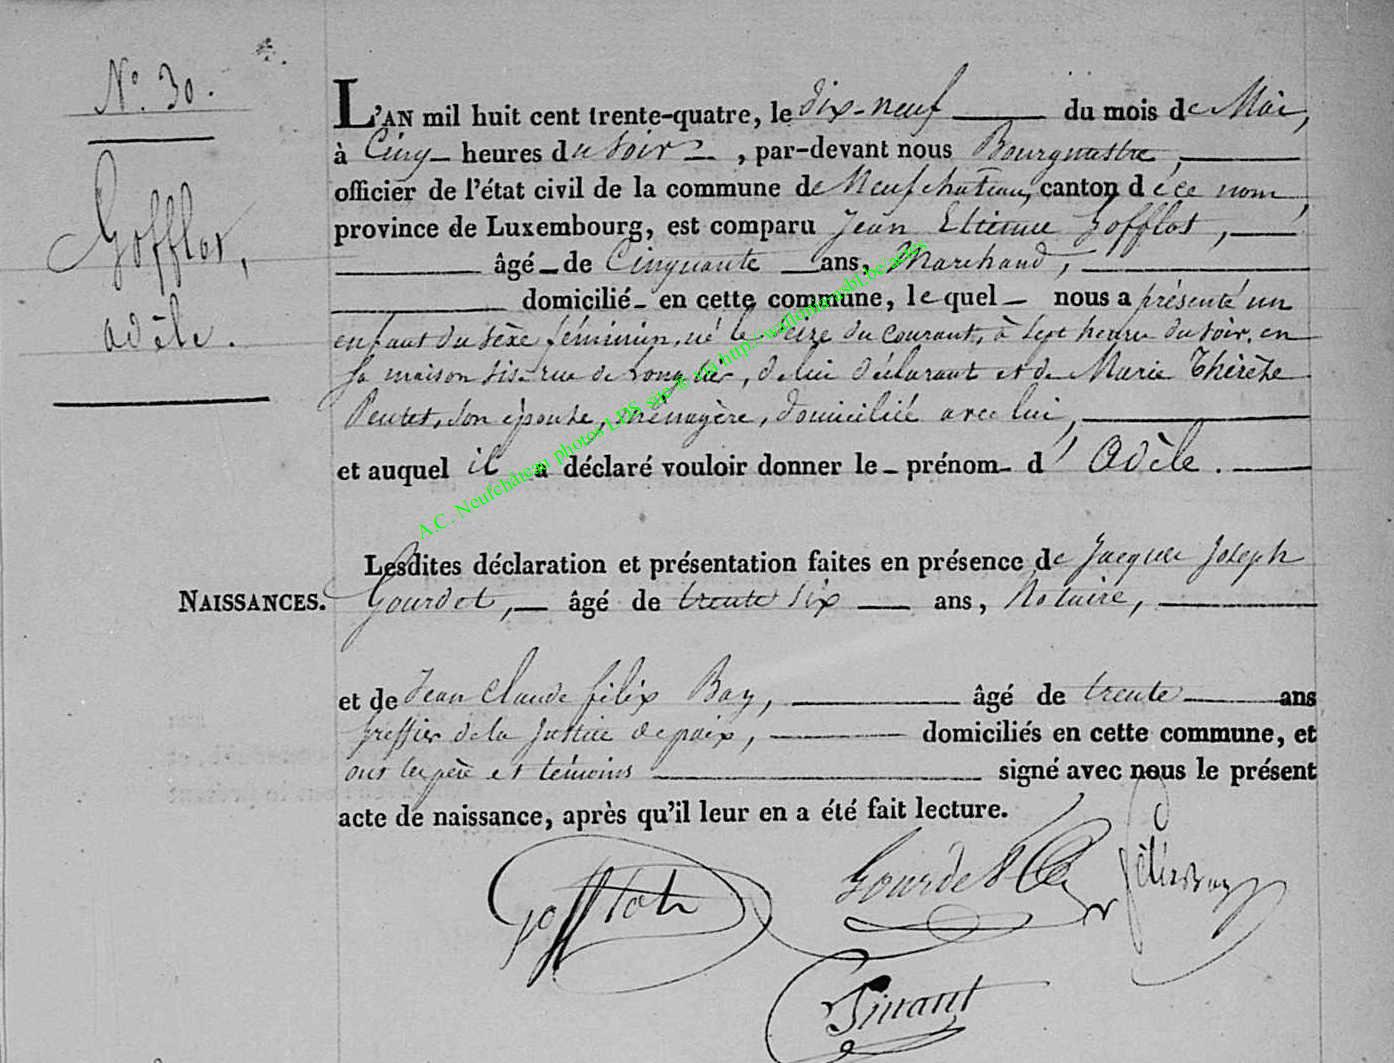 N.° 30.
Gofflot,
adèle.
L'AN mil huit cent trente-quatre, le dix-neuf du mois de Mai,
à Cinq heures du soir, par-devant nous Bourgmestre,
officier de l'état civil de la commune de Neufchateau, canton de ce nom,
province de Luxembourg, est comparu Jean Etienne Gofflot,
âgé de Cinquante ans, Marchand,
domicilié en cette commune, lequel nous a présenté un
enfant du sèxe féminin, né le seize du courant, à sept heures du soir, en
sa maison sise rue de Longlier, de lui déclarant et de Marie Thérèse
son épouse, ménagère, domiciliée avec lui,
et auquel il a déclaré vouloir donner le prénom d'Adèle.
Lesdites déclaration et présentation faites en présence de Jacques Joseph
NAISSANCES.
Gourdet, âgé de trente six ans, Notaire,
et de Jean Claude félix Bay, âgé de trente ans
greffier de la Justice de paix, domiciliés en cette commune, et
ont les père et témoins signé avec nous le présent
acte de naissance, après qu'il leur en a été fait lecture.
Gofflot
Gourdet
félix Bay
Pinant
A.C. Neufchâteau photos LDS